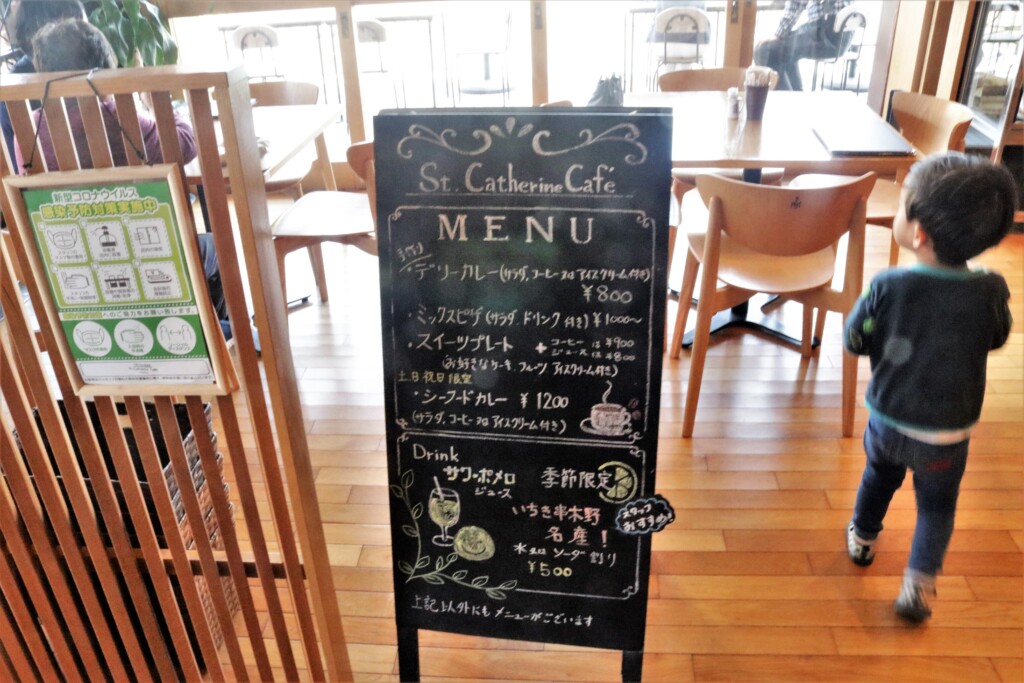 新型コロナウイルス
感染予防対策実施中
St. Catherine Café
MENU
手作り
・デリーカレー(サラダ、コーヒー又はアイスクリーム付き)
¥800
・ミックスピザ(サラダ、ドリンク付き) ¥1000〜
・スイーツプレート + コーヒー は ¥900
ジュース は ¥800
(お好きなケーキ、フルーツ、アイスクリーム付き)
土日祝日限定
・シーフードカレー ¥1200
(サラダ、コーヒー又はアイスクリーム付き)
Drink
サワーポメロ
ジュース
季節限定
スタッフ
おすすめ!
いちき串木野
名産!
水又は ソーダ割り
¥500
上記以外にもメニューがございます